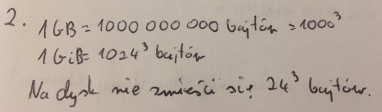 2. 1 GB = 1000 000 000 bajtów = 1000³
1 GiB = 1024³ bajtów
Na dysk nie zmieści się 24³ bajtów.